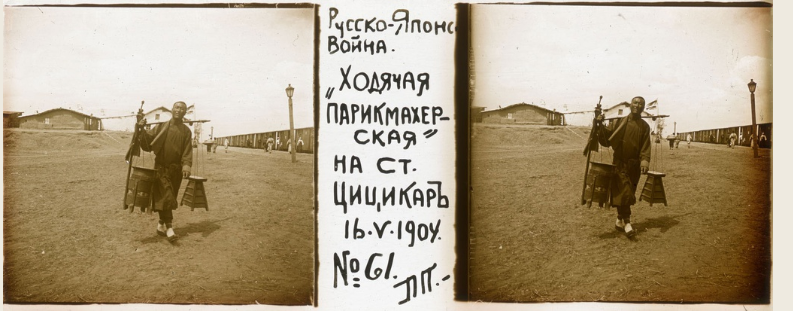 Русско-Японс
Война.
„Ходячая
парикмахер-
ская”
на ст.
Цицикаръ
16.V.1904.
№61.
ПП.-